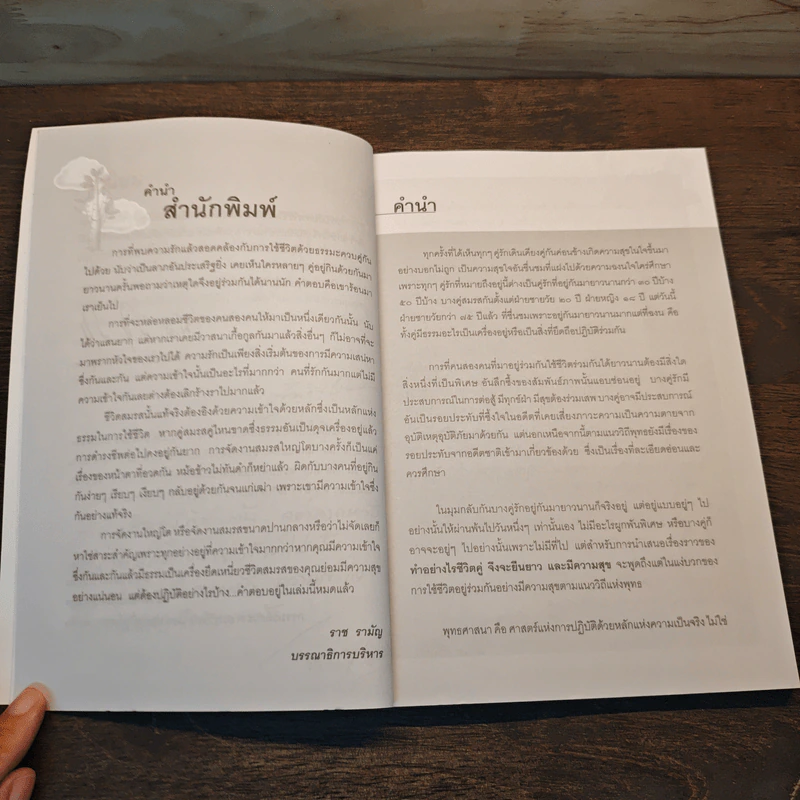 คำนำ
สำนักพิมพ์
การที่พบความรักแล้วสอดคล้องกับการใช้ชีวิตด้วยธรรมะควบคู่กัน
ไปด้วย นับว่าเป็นลาภอันประเสริฐยิ่ง เคยเห็นใครหลายๆ คู่อยู่กินด้วยกันมา
ยาวนานครั้นพอถามว่าเหตุใดจึงอยู่ร่วมกันได้นานนัก คำตอบคือเขาร้อนมา
เราเย็นไป
การที่จะหล่อหลอมชีวิตของคนสองคนให้มาเป็นหนึ่งเดียวกันนั้น นับ
ได้ว่าแสนยาก แต่หากเราเคยมีวาสนาเกื้อกูลกันมาแล้วสิ่งอื่นๆ ก็ไม่อาจที่จะ
มาพรากหัวใจของเราไปได้ ความรักเป็นเพียงสิ่งเริ่มต้นของการมีความเสน่หา
ซึ่งกันและกัน แต่ความเข้าใจนั้นเป็นอะไรที่มากกว่า คนที่รักกันมากแต่ไม่มี
ความเข้าใจกันเลยต่างต้องเลิกร้างราไปมากแล้ว
ชีวิตสมรสนั้นแท้จริงต้องอิงด้วยความเข้าใจด้วยหลักซึ่งเป็นหลักแห่ง
ธรรมในการใช้ชีวิต หากคู่สมรสคู่ไหนขาดซึ่งธรรมอันเป็นดุจเครื่องอยู่แล้ว
การดำรงชีพต่อไปคงอยู่กันยาก การจัดงานสมรสใหญ่โตบางครั้งก็เป็นแค่
เรื่องของหน้าตาที่อวดกัน หม้อข้าวไม่ทันดำก็หย่าแล้ว ผิดกับบางคนที่อยู่กิน
กันง่ายๆ เรียบๆ เงียบๆ กลับอยู่ด้วยกันจนแก่เฒ่า เพราะเขามีความเข้าใจซึ่ง
กันอย่างแท้จริง
การจัดงานใหญ่โต หรือจัดงานสมรสขนาดปานกลางหรือว่าไม่จัดเลยก็
หาใช่สาระสำคัญเพราะทุกอย่างอยู่ที่ความเข้าใจมากกว่าหากคุณมีความเข้าใจ
ซึ่งกันและกันแล้วมีธรรมเป็นเครื่องยึดเหนี่ยวชีวิตสมรสของคุณย่อมมีความสุข
อย่างแน่นอน แต่ต้องปฏิบัติอย่างไรบ้าง...คำตอบอยู่ในเล่มนี้หมดแล้ว
ราช รามัญ
บรรณาธิการบริหาร
คำนำ
ทุกครั้งที่ได้เห็นทุกๆ คู่รักเดินเคียงคู่กันค่อนข้างเกิดความสุขในใจขึ้นมา
อย่างบอกไม่ถูก เป็นความสุขใจอันชื่นชมที่แฝงไปด้วยความฉงนใจใคร่ศึกษา
เพราะทุกๆ คู่รักที่หมายถึงอยู่นี้ต่างเป็นคู่รักที่อยู่กันมายาวนานกว่า ๓๐ ปีบ้าง
๕๐ ปีบ้าง บางคู่สมรสกันตั้งแต่ฝ่ายชายวัย ๒๐ ปี ฝ่ายหญิง ๑๘ ปี แต่วันนี้
ฝ่ายชายวัยกว่า ๗๕ ปีแล้ว ที่ชื่นชมเพราะอยู่กันมายาวนานมากแต่ที่ฉงน คือ
ทั้งคู่มีธรรมอะไรเป็นเครื่องอยู่หรือเป็นสิ่งที่ยึดถือปฏิบัติร่วมกัน
การที่คนสองคนที่มาอยู่ร่วมกันใช้ชีวิตร่วมกันได้ยาวนานต้องมีสิ่งใด
สิ่งหนึ่งที่เป็นพิเศษ อันลึกซึ้งของสัมพันธ์ภาพนั้นแอบซ่อนอยู่ บางคู่รักมี
ประสบการณ์ในการต่อสู้ มีทุกข์ฝ่า มีสุขต้องร่วมเสพ บางคู่อาจมีประสบการณ์
อันเป็นรอยประทับที่ซึ้งใจในอดีตที่เคยเสี่ยงภาวะความเป็นความตายจาก
อุบัติเหตุอุบัติภัยมาด้วยกัน แต่นอกเหนือจากนี้ตามแนววิถีพุทธยังมีเรื่องของ
รอยประทับจากอดีตชาติเข้ามาเกี่ยวข้องด้วย ซึ่งเป็นเรื่องที่ละเอียดอ่อนและ
ควรศึกษา
ในมุมกลับกันบางคู่รักอยู่กันมายาวนานก็จริงอยู่ แต่อยู่แบบอยู่ๆ ไป
อย่างนั้นให้ผ่านพ้นไปวันหนึ่งๆ เท่านั้นเอง ไม่มีอะไรผูกพันพิเศษ หรือบางคู่ก็
อาจจะอยู่ๆ ไปอย่างนั้นเพราะไม่มีที่ไป แต่สำหรับการนำเสนอเรื่องราวของ
ทำอย่างไรชีวิตคู่ จึงจะยืนยาว และมีความสุข จะพูดถึงแต่ในแง่บวกของ
การใช้ชีวิตอยู่ร่วมกันอย่างมีความสุขตามแนววิถีแห่งพุทธ
พุทธศาสนา คือ ศาสตร์แห่งการปฏิบัติด้วยหลักแห่งความเป็นจริง ไม่ใช่